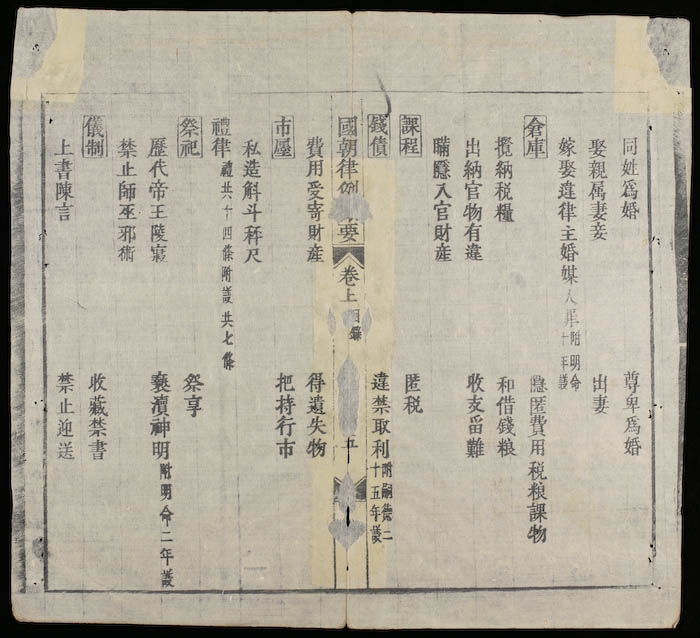 同姓為婚 尊卑為婚
娶親属妻妾 出妻
嫁娶違律主婚媒人罪 附明命十年議
倉庫 隱匿費用税粮課物
攬納税糧 和借錢粮
出納官物有違 收支留難
瞞隱入官財産
課程 匿税
錢債 違禁取利 附嗣德二十五年議
國朝律例 要 卷上 目錄 五
費用受寄財産 得遺失物
市廛 把持行市
私造斛斗秤尺
禮律 禮共十四條附議共七條
祭祀 祭享
歷代帝王陵寢 褻瀆神明 附明命二年議
禁止師巫邪術
儀制 收藏禁書
上書陳言 禁止迎送